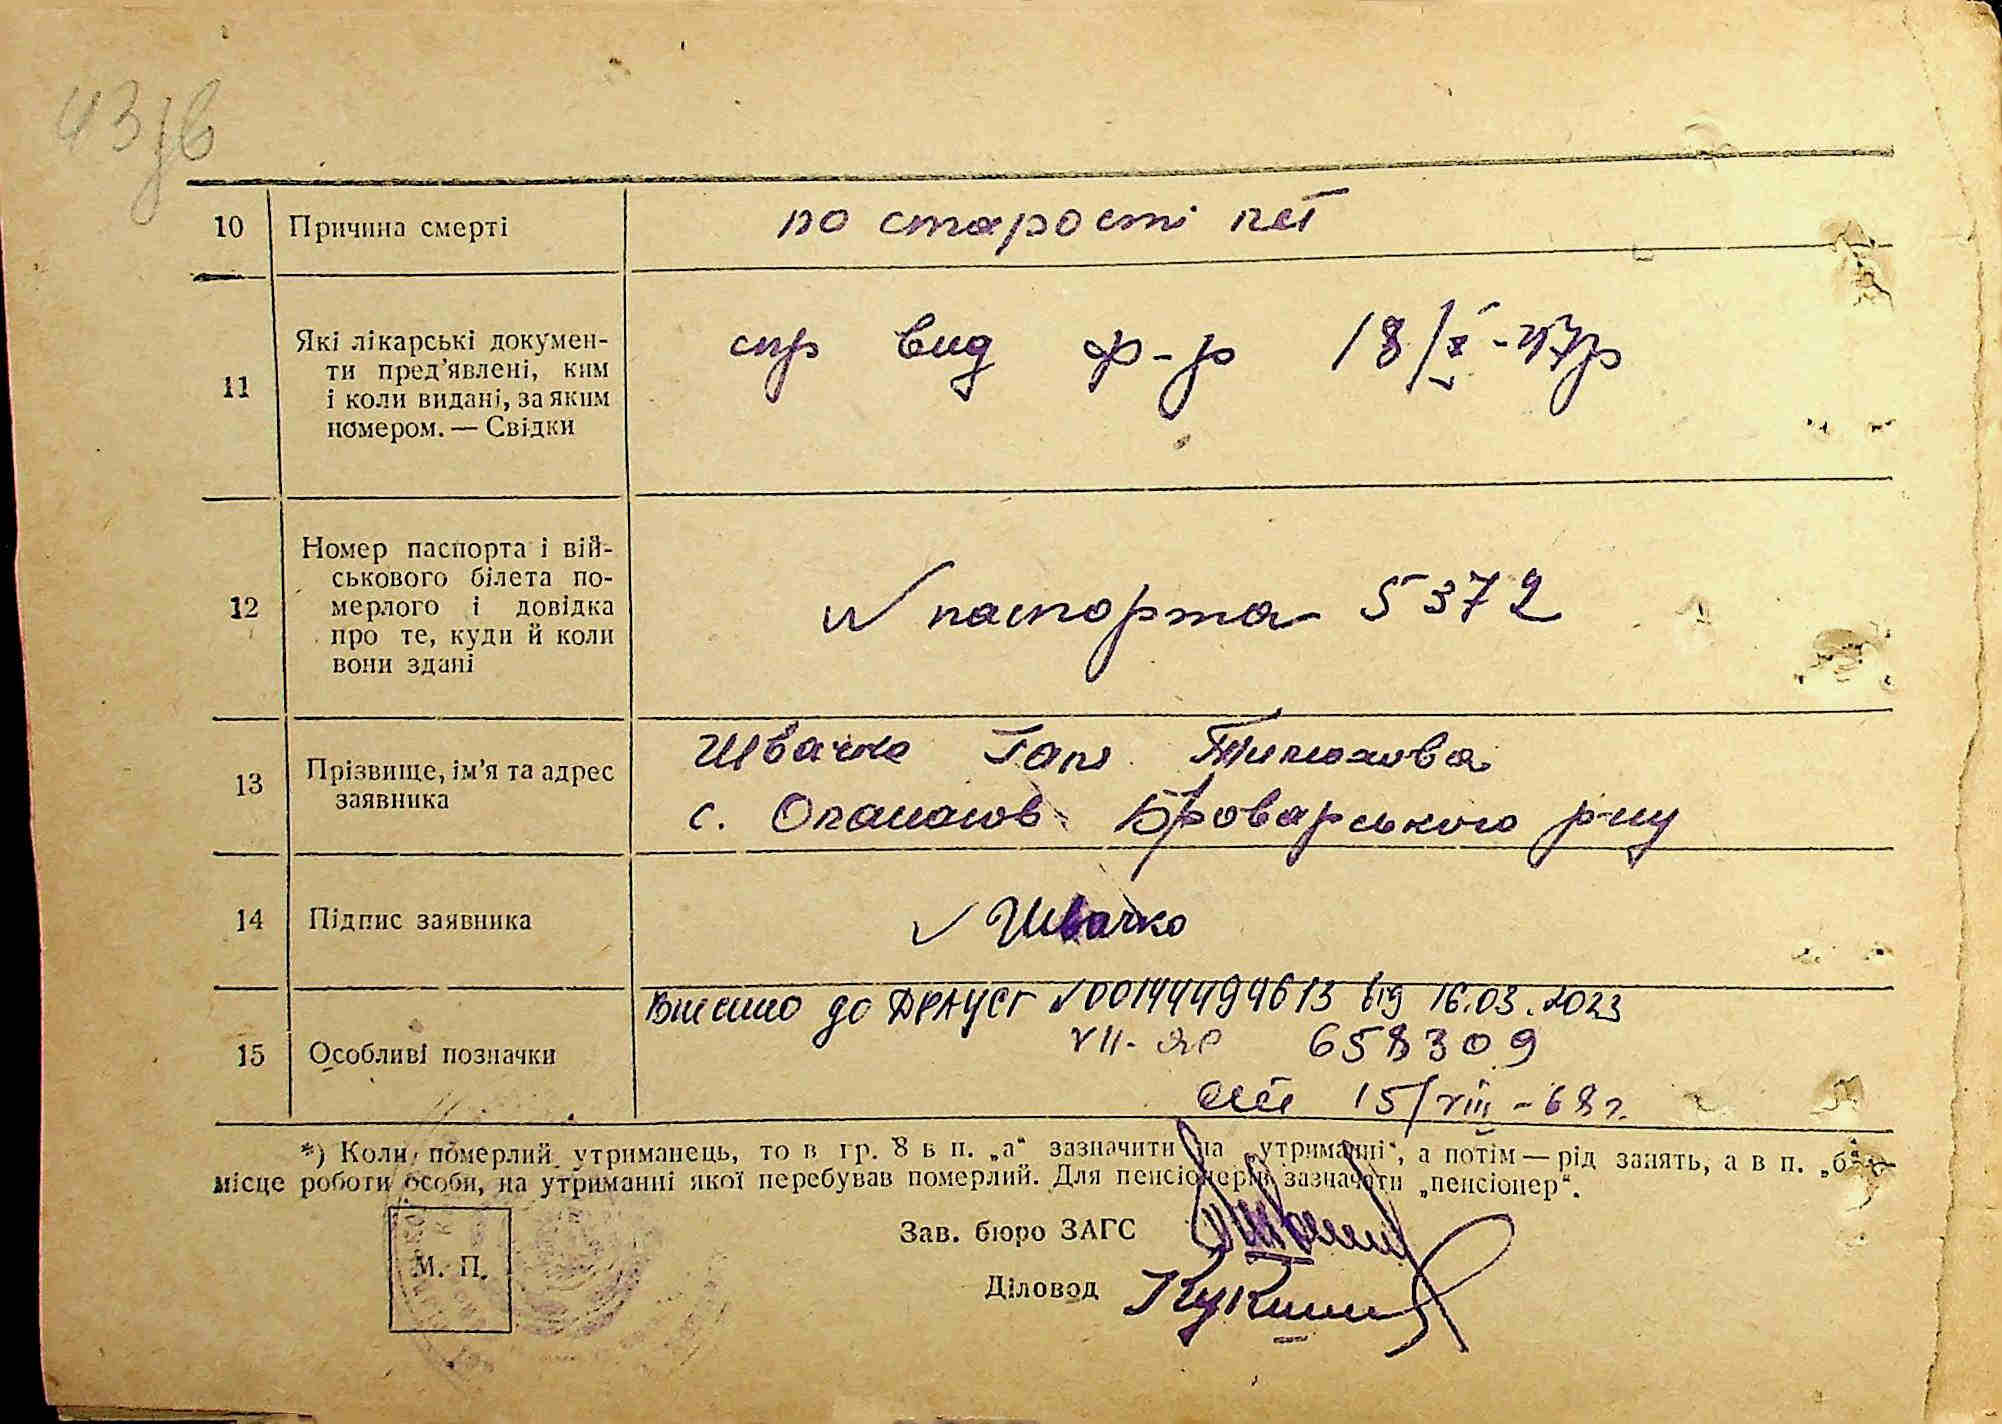 43 зв
10 Причина смерті по старості літ
11 Які лікарські докумен-
ти пред'явлені, ким
і коли видані, за яким
номером. — Свідки
спр вид ф-р 18/X-47р
12 Номер паспорта і вій-
ськового білета по-
мерлого і довідка
про те, куди й коли
вони здані
№ паспорта 5372
13 Прізвище, ім'я та адрес
заявника
Швачко Гапа
с. Опанасов Броварського р-ну
14 Підпис заявника Швачко
15 Особливі позначки
Внесено до ДРАЦСГ №00144494613 від 16.03.2023
VII- 658309
15/VIII-68г.
*) Коли померлий утриманець, то в гр. 8 в п. „а“ зазначити „на утриманні“, а потім — рід занять, а в п. „б“ —
місце роботи особи, на утриманні якої перебував померлий. Для пенсіонерів зазначати „пенсіонер“.
Зав. бюро ЗАГС
М. П.
Діловод